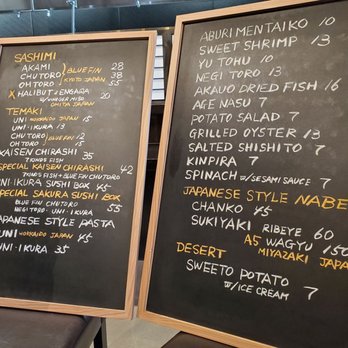 SASHIMI
AKAMI 28
CHUTORO BLUEFIN 38
OHTORO KYOTO JAPAN 55
X HALIBUT/ENGAWA 20
OHITA JAPAN
TEMAKI
UNI HOKKAIDO JAPAN 15
UNI-IKURA 13
CHUTORO BLUEFIN 12
OHTORO 15
KAISEN CHIRASHI 35
7KINDS FISH
SPECIAL KAISEN CHIRASHI 42
7KINDS FISH + BLUE FIN CHUTORO
UNI IKURA SUSHI BOX 45
SPECIAL SAKURA SUSHI BOX 55
BLUE FIN CHUTORO
NEGI TORO · UNI · IKURA
JAPANESE STYLE PASTA
UNI HOKKAIDO JAPAN 45
UNI-IKURA 35
ABURI MENTAIKO 10
SWEET SHRIMP 13
YU TOHU 10
NEGI TORO 13
AKAUO DRIED FISH 16
AGE NASU 7
POTATO SALAD 7
GRILLED OYSTER 13
SALTED SHISHITO 7
KINPIRA 7
SPINACH W/SESAMI SAUCE 7
JAPANESE STYLE NABE
CHANKO 45
SUKIYAKI RIBEYE 60
A5 WAGYU 150
MIYAZAKI JAPAN
DESERT
SWEETO POTATO 7
W/ICE CREAM